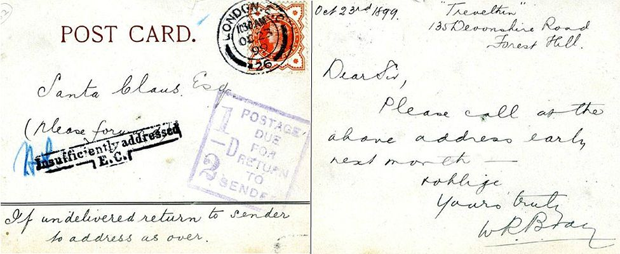 POST CARD.
LONDON
11.30 AM
OC
99
26
Santa Claus Esq
(Please forward
Insufficiently addressed
E.C.
1
D
2
POSTAGE
DUE
FOR
RETURN
TO
SENDER
If undelivered return to sender
to address as over.
Oct 23rd 1899.
"Trevethin"
135 Devonshire Road
Forest Hill.
Dear Sir,
Please call at the
above address early
next month —
& oblige
Yours truly
W.R. Bray